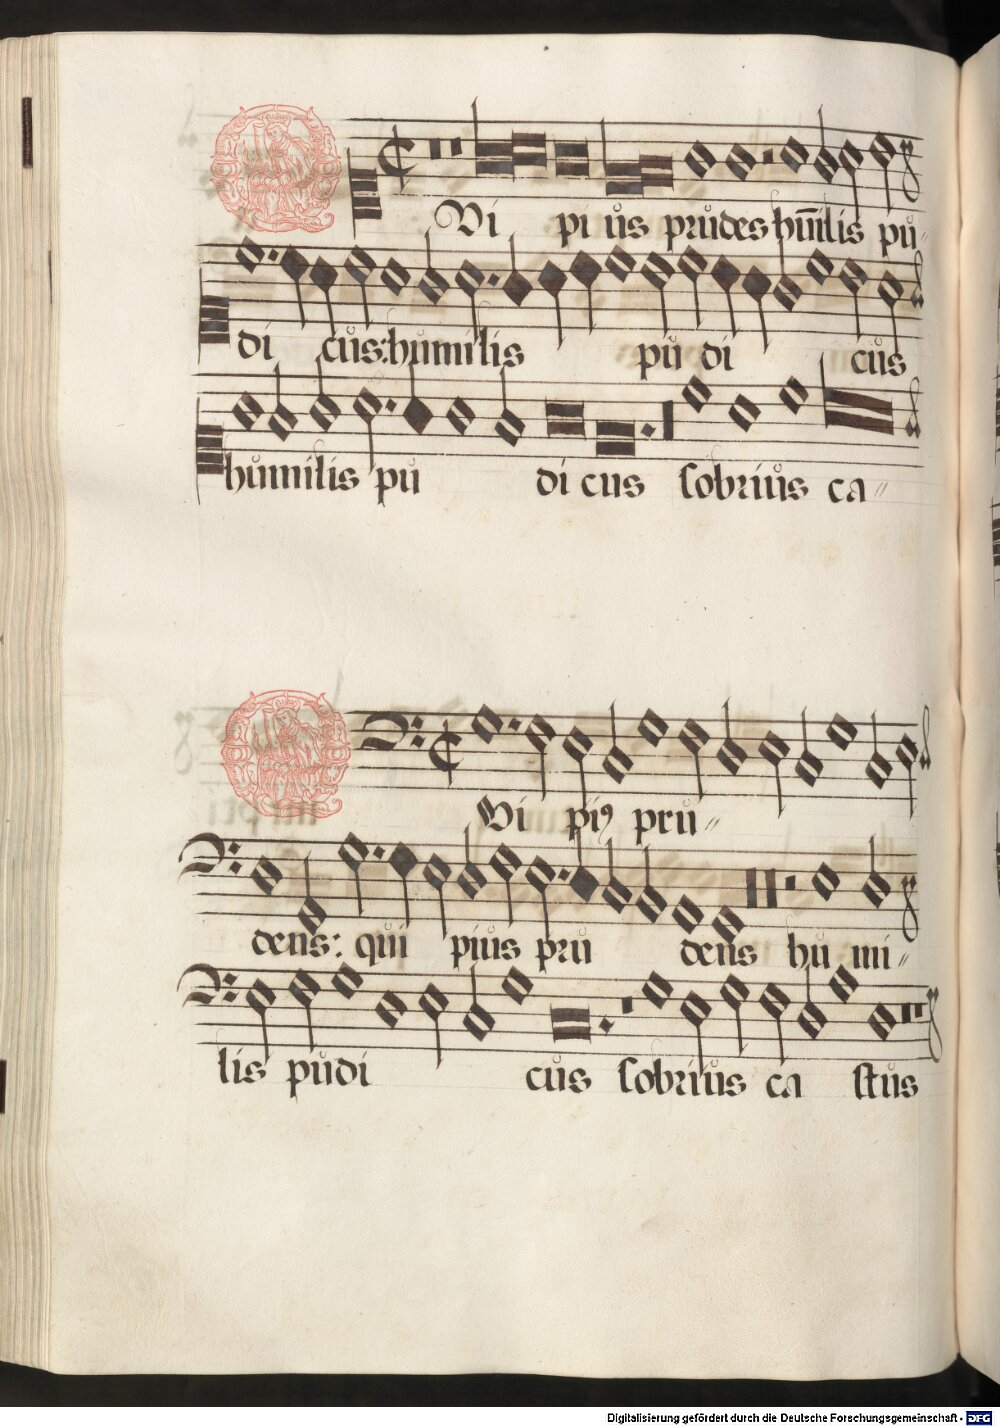 QVi pi us prudes humilis pu
di cus: humilis pu di cus
humilis pu di cus sobrius ca
QVi pi9 pru
dens: qui pius pru dens hu mi
lis pudi cus sobrius ca stus
Digitalisierung gefördert durch die Deutsche Forschungsgemeinschaft - DFG